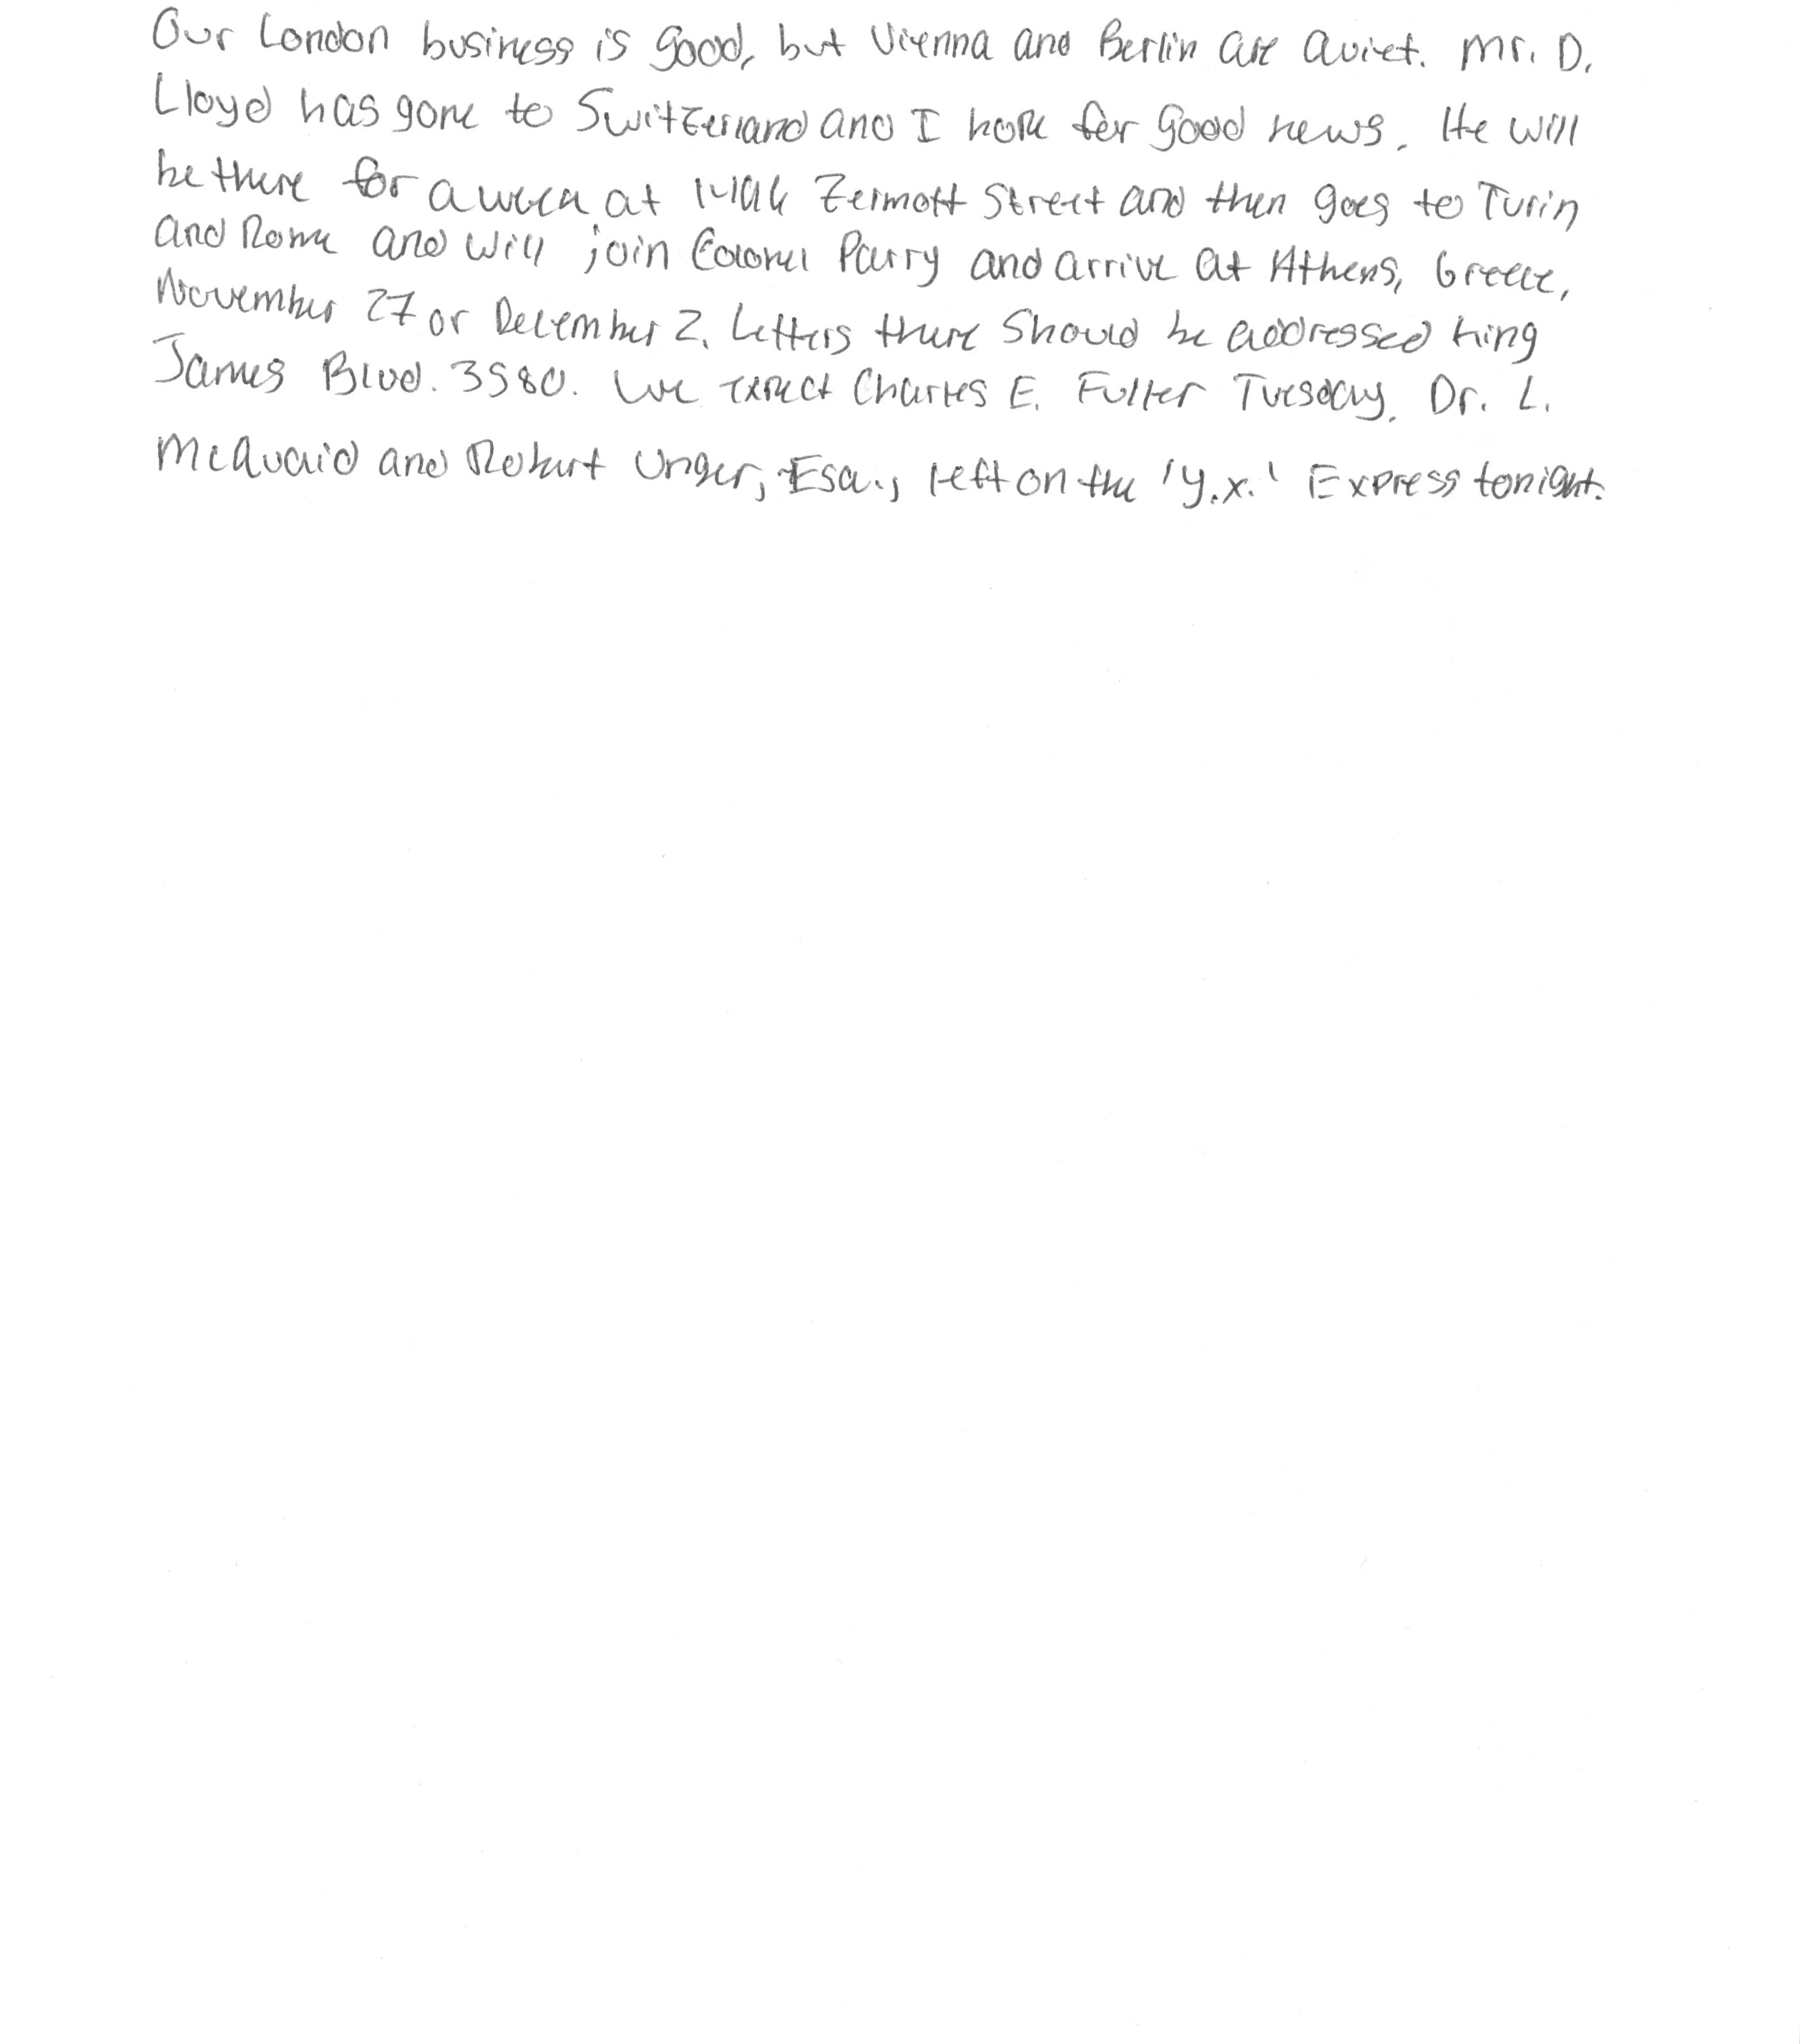 Our London business is good, but Vienna and Berlin are quiet. Mr. D.
Lloyd has gone to Switzerland and I hope for good news. He will
be there for a week at Zermott Street and then goes to Turin
and Rome and will join Colonel Parry and arrive at Athens, Greece,
November 27 or December 2. Letters there should be addressed King
James Blvd. 3580. We expect Charles E. Fuller Tuesday. Dr. L.
McQuaid and Robert Unger, Esq., left on the 'Y.X.' Express tonight.